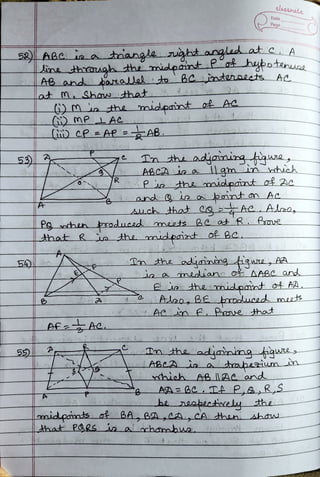 classmate
Date
Page
52) ABC is a triangle right angled at C. A
line through the midpoint P of hypotenuse
AB and parallel to BC intersects AC
at M. Show that
(i) M is the midpoint of AC
(ii) MP ⊥ AC
(iii) CP = AP = 1/2 AB.
53) In the adjoining figure,
ABCD is a ||gm in which
P is the midpoint of DC
and Q is a point on AC
such that CQ = 1/4 AC. Also,
PQ when produced meets BC at R. Prove
that R is the midpoint of BC.
54) In the adjoining figure, AD
is a median of ΔABC and
E is the midpoint of AD.
Also, BE produced meets
AC in F. Prove that
AF = 1/3 AC.
55) In the adjoining figure,
ABCD is a trapezium in
which AB || DC and
AD = BC. If P, Q, R, S
be respectively the
midpoints of BA, BD, CD, CA then show
that PQRS is a rhombus.